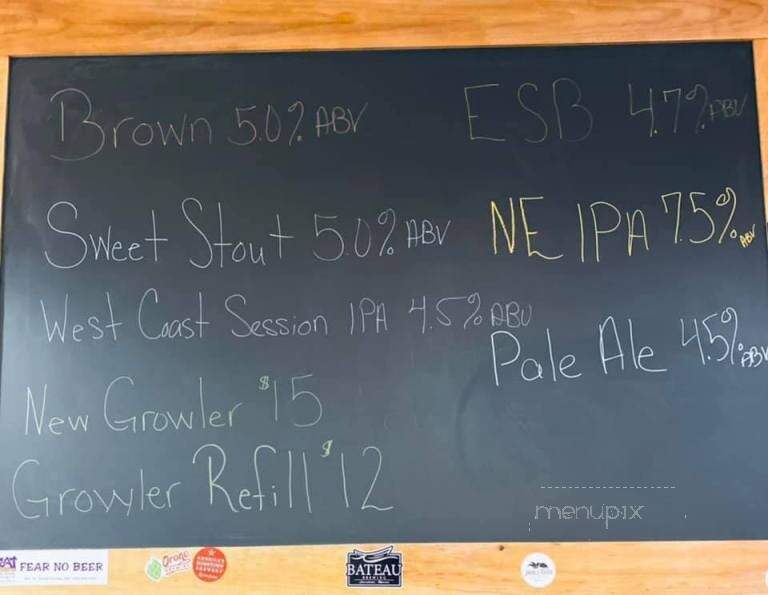 Brown 5.0% ABV
Sweet Stout 5.0% ABV
West Coast Session IPA 4.5% ABV
New Growler $15
Growler Refill $12
ESB 4.7% ABV
NE IPA 7.5% ABV
Pale Ale 4.5% ABV
menupix
FEAR NO BEER
Orono
BATEAU
BREWING